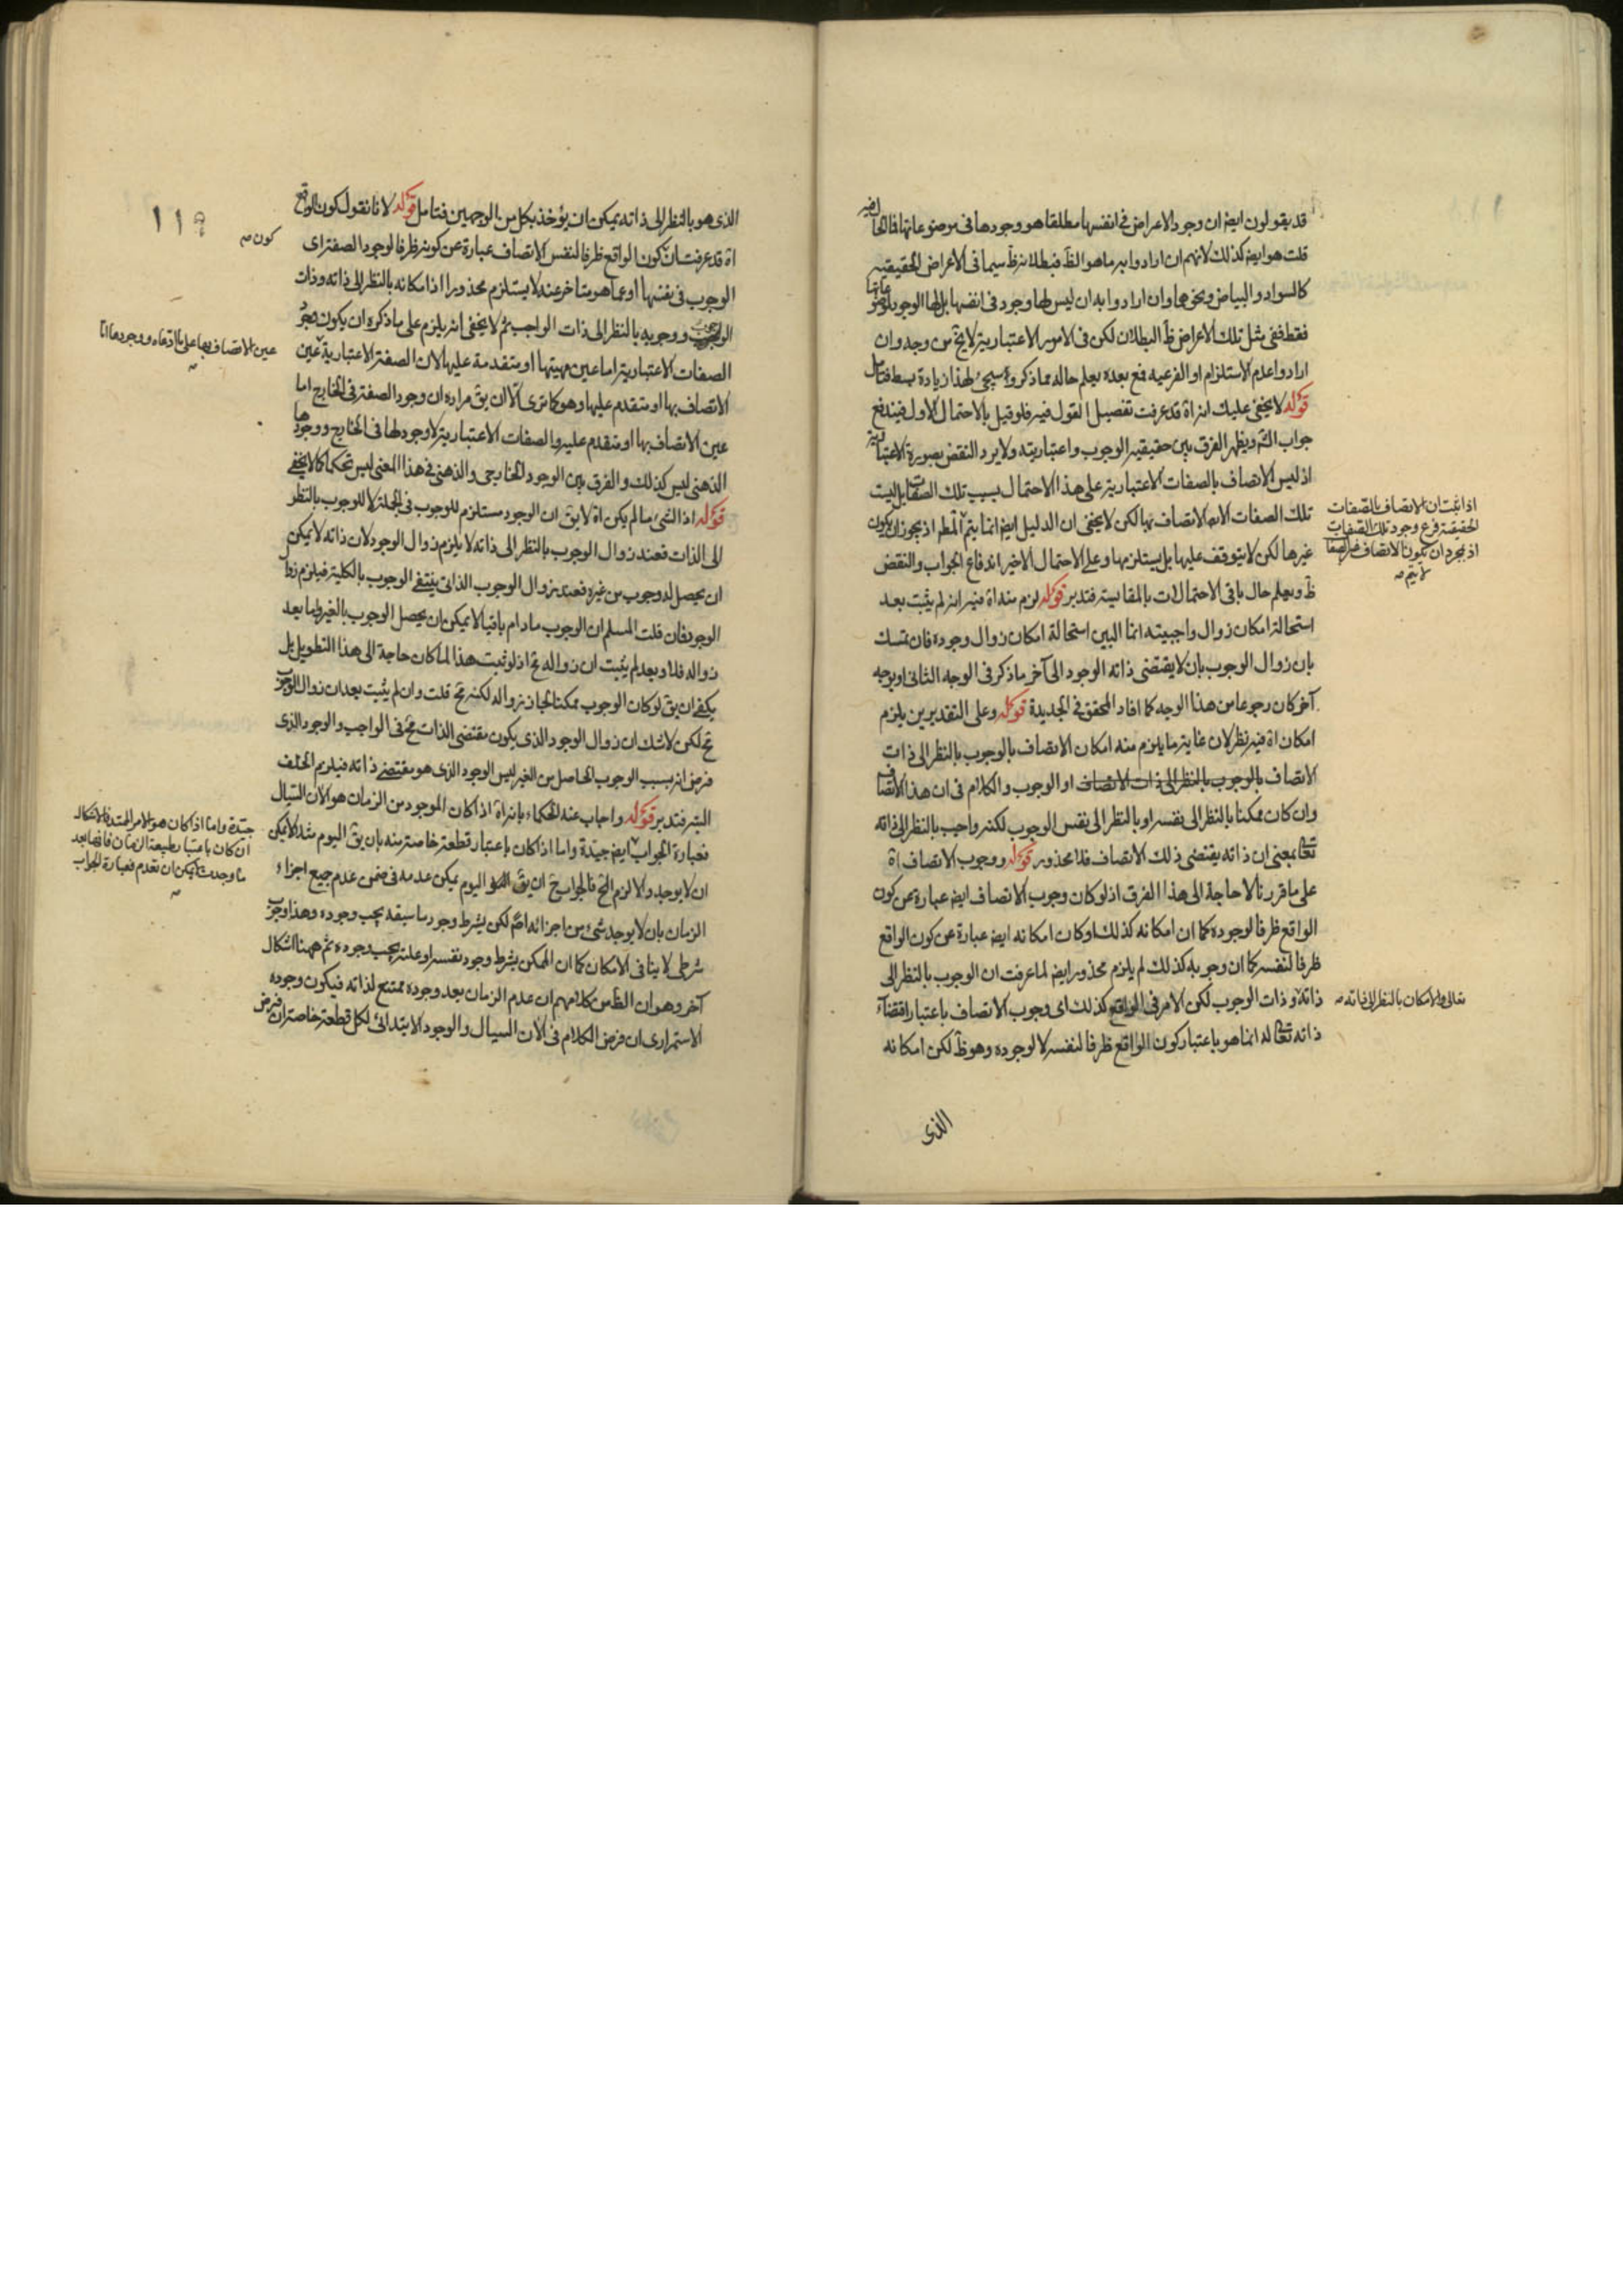 قد يقولون ايض ان وجود الاعراض في انفسها مطلقا هو وجودها في موضوعاتها فالحال فيه
قلت هو ايض كذلك لانهم ان ارادوا به ما هو الظ فبطلانه ظ سيما في الاعراض الحقيقيه
كالسواد والبياض ونحوهما وان ارادوا به ان ليس لها وجود في انفسها بل لها الوجود لموضوعاتها
فقط ففي مثل تلك الاعراض ظ البطلان لكن في الامور الاعتبارية لا يخ من وجه وان
ارادوا عدم الاستلزام او الفرعيه فمع بعده يعلم حاله مما ذكر وسيجئ لهذا زيادة بسط فتامل
قوله لا يخفى عليك انه اة قد عرفت تفصيل القول فيه فلو قيل بالاحتمال الاول فيندفع
جواب الش ويظهر الفرق بين حقيقيه الوجوب واعتباريته ولا يرد النقض بصورة الاعتبارية
اذ ليس الاتصاف بالصفات الاعتبارية على هذا الاحتمال بسبب تلك الصفات بل ليست
تلك الصفات الا الاتصاف بها لكن لا يخفى ان الدليل ايض انما يتم المط اذ يجوز ان يكون
غيرها لكن لا يتوقف عليها بل يستلزمها وعلى الاحتمال الاخير اندفاع الجواب والنقض
ظ ويعلم حال باقي الاحتمالات بالمقايسة فتدبر قوله لزم منه اة فيه انه لم يثبت بعد
استحالة امكان زوال واجبيته انما البين استحالة امكان زوال وجوده فان تمسك
بان زوال الوجوب بان لا يقتضى ذاته الوجود الى آخر ما ذكر في الوجه الثاني او بوجه
آخر كان رجوعا من هذا الوجه كما افاد المحقق في الجديدة قوله وعلى التقديرين يلزم
امكان اة فيه نظر لان غاية ما يلزم منه امكان الاتصاف بالوجوب بالنظر الى ذات
الاتصاف بالوجوب بالنظر الى ذات الاتصاف او الوجوب والكلام في ان هذا الاتصاف
وان كان ممكنا بالنظر الى نفسه او بالنظر الى نفس الوجوب لكنه واجب بالنظر الى ذاته
تعالى بمعنى ان ذاته يقتضى ذلك الاتصاف فلا محذور قوله ووجوب الاتصاف اة
على ما قررنا لا حاجة الى هذا الفرق اذ لو كان وجوب الاتصاف ايض عبارة عن كون
الواقع ظرفا لوجوده كما ان امكانه كذلك او كان امكانه ايض عبارة عن كون الواقع
ظرفا لنفسه كما ان وجوبه كذلك لم يلزم محذور ايض لما عرفت ان الوجوب بالنظر الى
ذاته وذات الوجوب لكن الامر في الواقع كذلك اى وجوب الاتصاف باعتبار اقتضاء
ذاته تعالى له انما هو باعتبار كون الواقع ظرفا لنفسه لا لوجوده وهو ظ لكن امكانه
الذى
اذا ثبت ان الاتصاف بالصفات
الحقيقية فرع وجود تلك الصفات
اذ بمجرد ان يكون الاتصاف غير الصفات
لا يتم صه
تعالى والامكان بالنظر الى ذاته صه
الذى هو بالنظر الى ذاته يمكن ان يؤخذ بكل من الوجهين فتامل قوله لانا نقول كون الواقع
اة قد عرفت ان كون الواقع ظرفا لنفس الاتصاف عبارة عن كونه ظرفا لوجود الصفة اى
الوجوب في نفسها او عما هو متاخر عنه لا يستلزم محذورا اذ امكانه بالنظر الى ذاته وذات
الوجوب ووجوبه بالنظر الى ذات الواجب ثم لا يخفى انه يلزم على ما ذكره ان يكون وجود
الصفات الاعتبارية اما عين مهيتها او متقدمة عليها لان الصفة الاعتبارية عين
الاتصاف بها او متقدم عليها وهو كما ترى الا ان يق مراده ان وجود الصفة في الخارج اما
عين الاتصاف بها او متقدم عليه والصفات الاعتبارية لا وجود لها في الخارج ووجودها
الذهني ليس كذلك والفرق بين الوجود الخارجي والذهني في هذا المعنى ليس تحكما كما لا يخفى
قوله اذ الشئ ما لم يكن اة لا يق ان الوجود مستلزم للوجوب في الجملة لا للوجوب بالنظر
الى الذات فعند زوال الوجوب بالنظر الى ذاته لا يلزم زوال الوجود لان ذاته لا يمكن
ان يحصل له وجوب من غيره فعند زوال الوجوب الذاتى ينتفى الوجوب بالكلية فيلزم زوال
الوجود فان قلت المسلم ان الوجوب ما دام باقيا لا يمكن ان يحصل الوجوب بالغير واما بعد
زواله فلا وبعد لم يثبت ان زواله مح اذ لو ثبت هذا لما كان حاجة الى هذا التطويل بل
يكفى ان يق لو كان الوجوب ممكنا لجاز زواله لكنه مح قلت وان لم يثبت بعد ان زوال الوجوب
مح لكن لا شك ان زوال الوجود الذى يكون مقتضى الذات مح في الواجب والوجود الذى
فرض انه بسبب الوجوب الحاصل من الغير ليس الوجود الذى هو مقتضى ذاته فيلزم الخلف
البتة فتدبر قوله واجاب عنه الحكماء بانه اة اذا كان الموجود من الزمان هو الآن السيال
فعبارة الجواب ايض جيدة واما اذا كان باعتبار قطعة خاصة منه بان يق اليوم مثلا يمكن
ان لا يوجد والا لزم الخ فالجواب ح ان يق اليوم يمكن عدمه في ضمن عدم جميع اجزاء
الزمان بان لا يوجد شئ من اجزائه اصلا لكن بشرط وجود ما سبقه يجب وجوده وهذا وجوب
شرطى لا ينافى الامكان كما ان الممكن بشرط وجود نفسه او علته يجب وجوده ثم ههنا اشكال
آخر وهو ان الظ من كلامهم ان عدم الزمان بعد وجوده ممتنع لذاته فيكون وجوده
الاستمرارى ان فرض الكلام في الآن السيال والوجود الابتدائى لكل قطعة خاصة ان فرض
١١٩
كون صه
عين الاتصاف بها على ما ادعاه ووجودها اما
جيدة واما اذا كان هو الامر الممتد فالاشكال
ان كان باعتبار طبيعة الزمان فانها بعد
ما وجدت لا يمكن ان تعدم فعبارة الجواب
صه